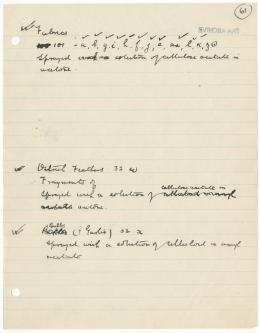 61
Fabrics
101 - a, b, g, i, h, f, j, e, aa, l, k, z
Sprayed a solution of cellulose acetate in
acetone.
Ostrich Feathers 32 w
Fragments of
cellulose acetate in
Sprayed with a solution of
acetone.
Bulls
32 x
Sprayed with a solution of celluloid in amyl
acetate